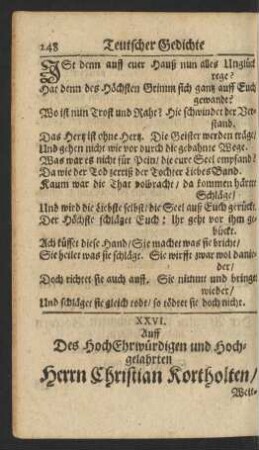 148 Teutscher Gedichte
ISt denn auff euer Hauß nun alles Unglück
rege?
Hat denn des Höchsten Grimm sich gantz auff Euch
gewandt?
Wo ist nun Trost und Raht? Hie schwindet der Ver-
stand.
Das Hertz ist ohne Hertz. Die Geister werden träge/
Und gehen nicht wie vor durch die gebahnte Wege.
Was war es nicht für Pein/ die eure Seel empfand?
Da wie der Tod zerriß der Tochter Liebes Band.
Kaum war die That volbracht/ da kommen härtre
Schläge/
Und wird die Liebste selbst/ die Seel aus Euch gerückt.
Der Höchste schläget Euch: Ihr geht vor ihm ge-
bückt.
Ach küsset diese Hand/ Sie machet was sie bricht/
Sie heilet was sie schläge. Sie wirfft zwar wol danie-
der/
Doch richtet sie auch auff. Sie nimmt und bringt
wieder/
Und schläget sie gleich todt/ so tödtet sie doch nicht.
XXVI.
Auff
Des HochEhrwürdigen und Hoch-
gelahrten
Herrn Christian Kortholten/
Welt-